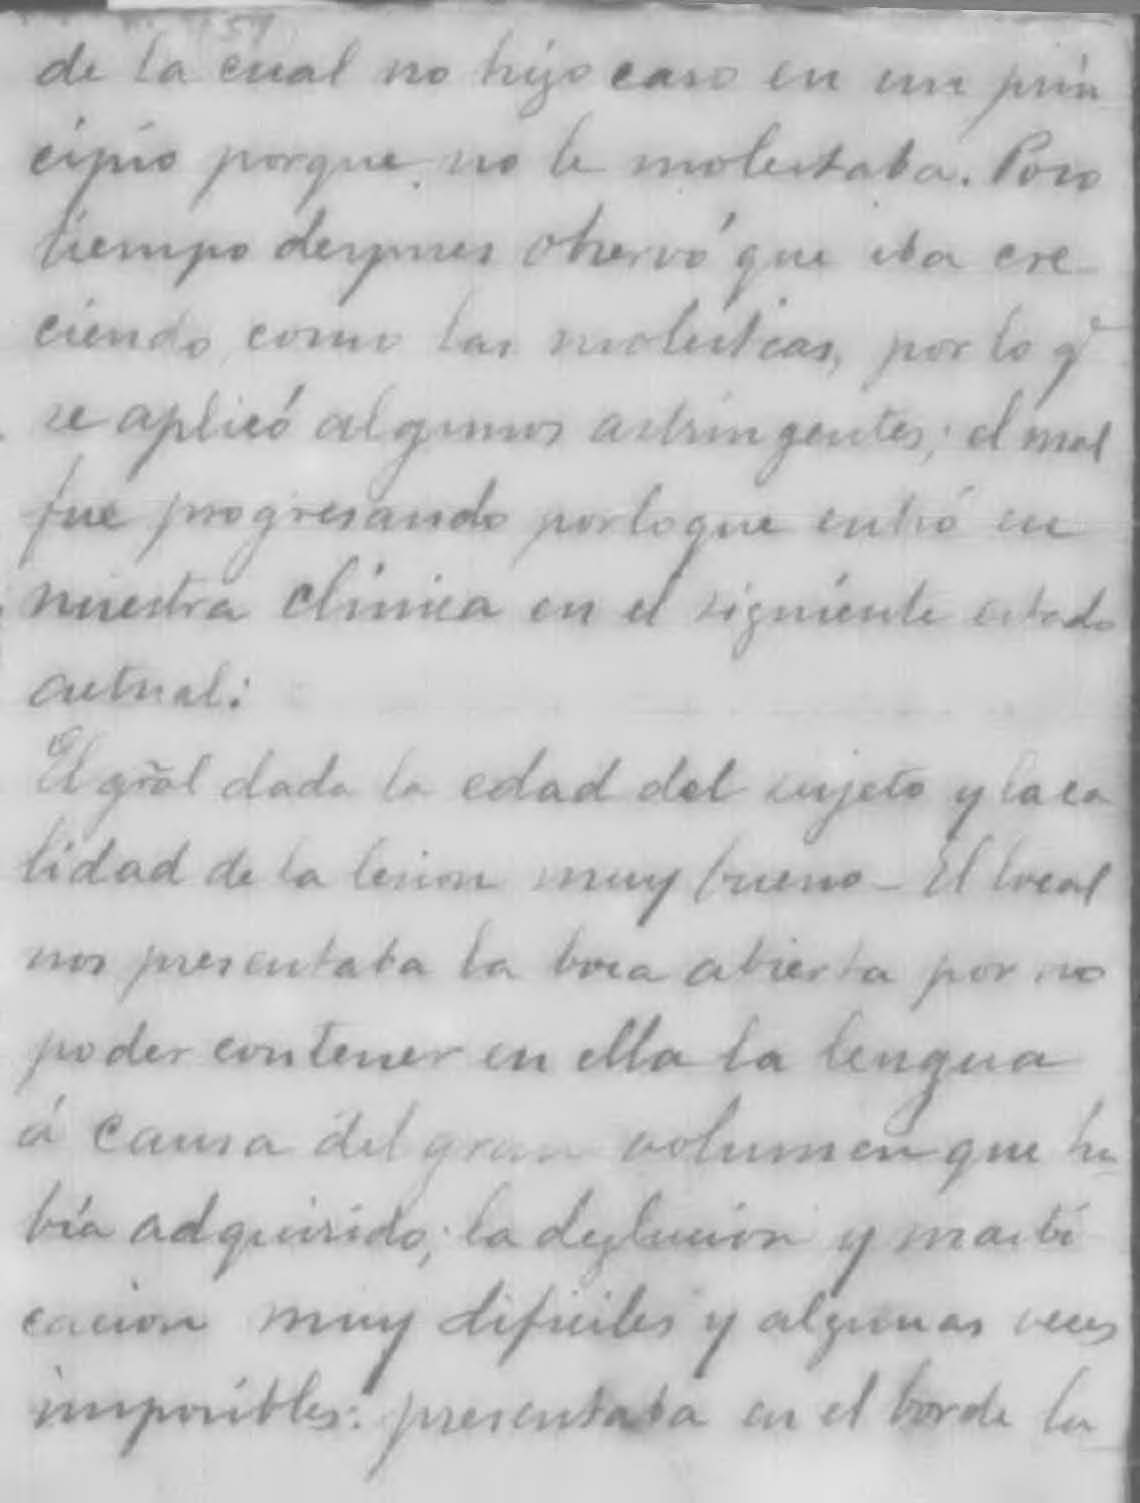 de la cual no hizo caso en un prin
cipio porque no le molestaba. Poco
tiempo despues observó que iba cre
ciendo, como las molestias, por lo qe
se aplicó algunos astringentes; el mal
fue progresando por lo que entró en
nuestra clínica en el siguiente estado
actual:
El gral dada la edad del sujeto y la ca
lidad de la lesion muy bueno - El local
nos presentaba la boca abierta por no
poder contener en ella la lengua
á causa del gran volumen que ha
bía adquirido; la deglucion y masti
cacion muy dificiles y algunas veces
imposibles: presentaba en el borde